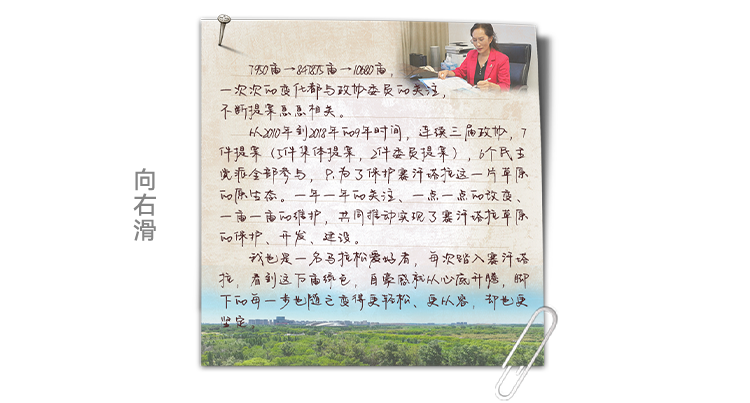 向右滑
7950亩→8478.75亩→10680亩,
一次次的变化都与政协委员的关注,
不断提案息息相关。
从2010年到2018年的9年时间,连续三届政协,7
件提案(5件集体提案,2件委员提案),6个民主
党派全部参与,只为了保护赛汗塔拉这一片草原
的原生态。一年一年的关注、一点一点的改变、
一亩一亩的维护,共同推动实现了赛汗塔拉草原
的保护、开发、建设。
我也是一名马拉松爱好者,每次踏入赛汗塔
拉,看到这万亩绿色,自豪感就从心底升腾,脚
下的每一步也随之变得更轻松、更从容,却也更
坚定。